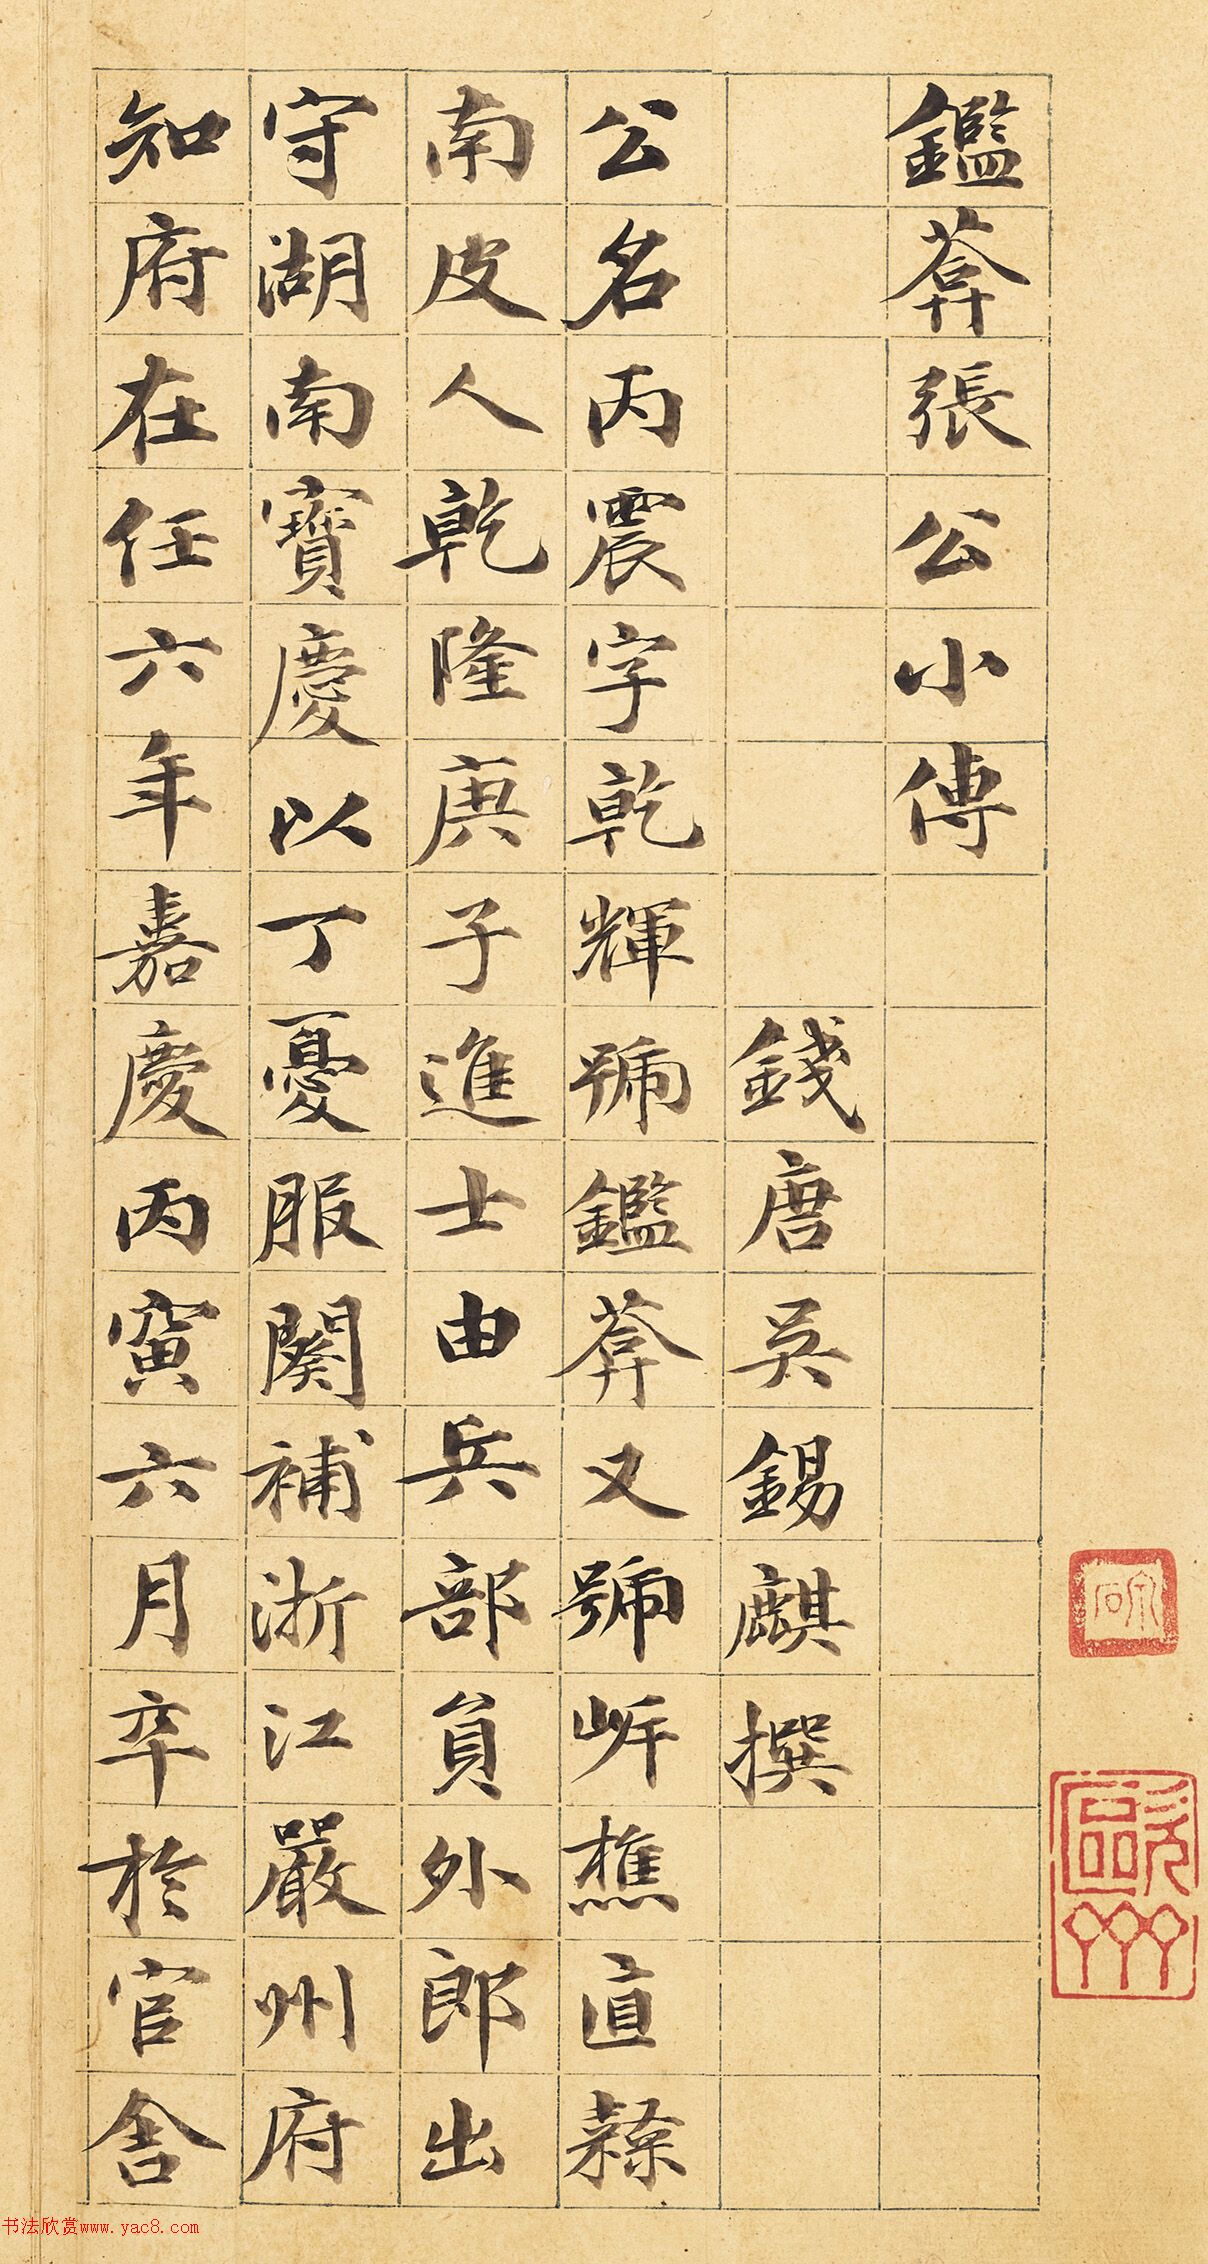 鑑葊張公小傳
錢唐吳錫麒撰
公名丙震字乾輝號鑑葊又號岍樵直隸
南皮人乾隆庚子進士由兵部員外郎出
守湖南寶慶以丁憂服闋補浙江嚴州府
知府在任六年嘉慶丙寅六月卒於官舍
书法欣赏www.yac8.com